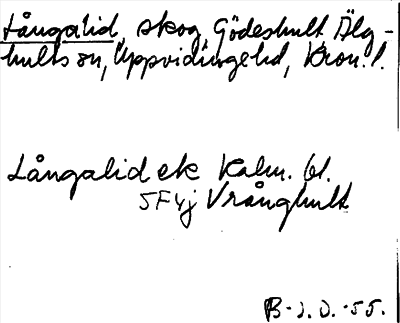 Långalid, skog Gödeshult, Älg-
hults sn, Uppvidinge hd, Kron. l.
Långalid ek Kalm. bl.
5F4j Vrånghult
B-J. D. -55.